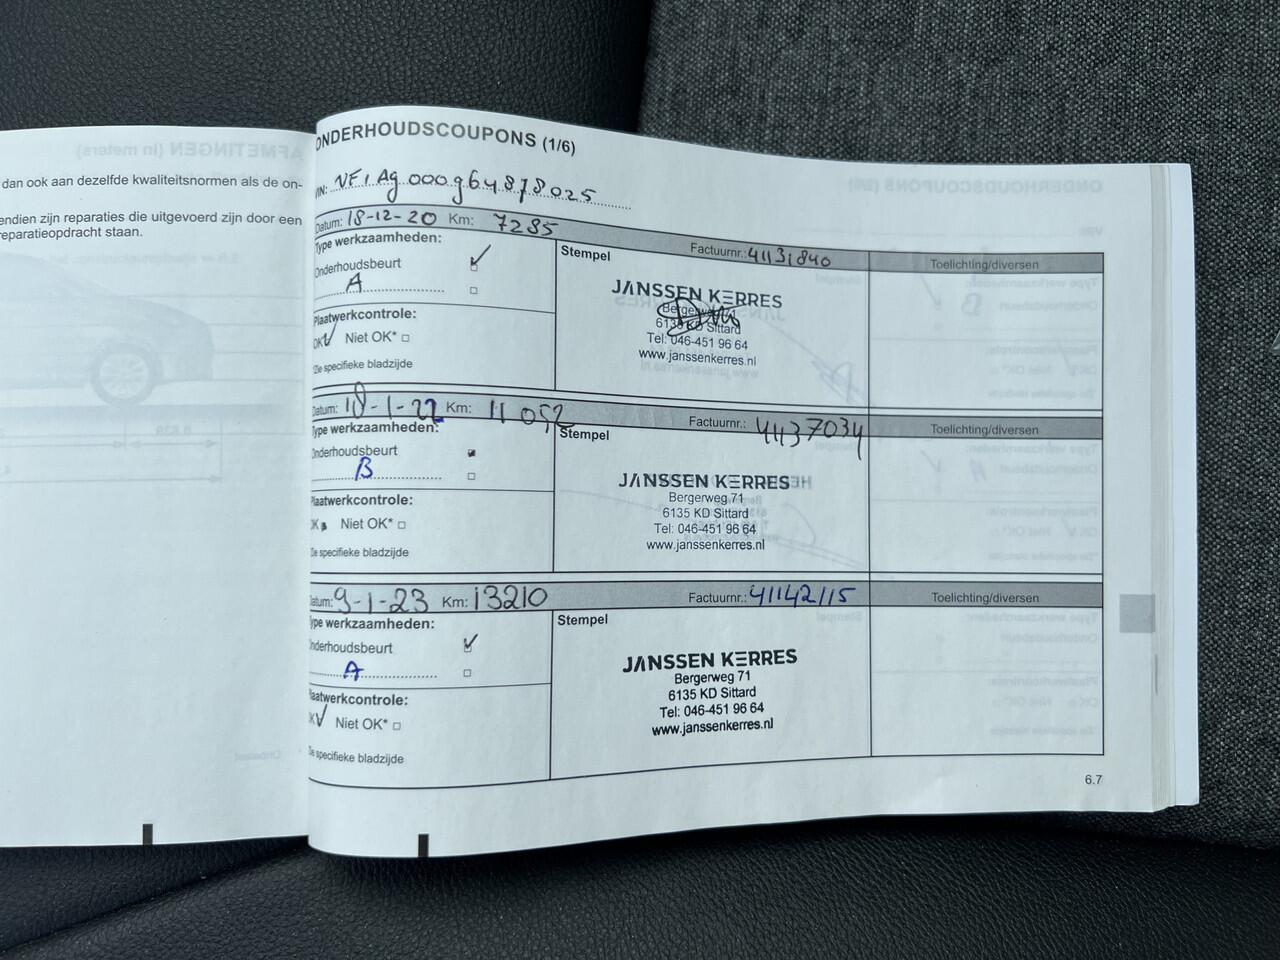 dan ook aan dezelfde kwaliteitsnormen als de on-
endien zijn reparaties die uitgevoerd zijn door een
reparatieopdracht staan.
ONDERHOUDSCOUPONS (1/6)
VIN: VF1Ag000g64878025
Datum: 18-12-20 Km: 7285 Factuurnr.: 41131840 Toelichting/diversen
Type werkzaamheden:
Onderhoudsbeurt
A
Plaatwerkcontrole:
OK Niet OK*
*Zie specifieke bladzijde
Stempel
JANSSEN KERRES
Bergerweg 71
6135 KD Sittard
Tel: 046-451 96 64
www.janssenkerres.nl
Datum: 18-1-22 Km: 11052 Factuurnr.: 4437034 Toelichting/diversen
Type werkzaamheden:
Onderhoudsbeurt
B
Plaatwerkcontrole:
OK Niet OK*
Zie specifieke bladzijde
Stempel
JANSSEN KERRES
Bergerweg 71
6135 KD Sittard
Tel: 046-451 96 64
www.janssenkerres.nl
Datum: 9-1-23 Km: 13210 Factuurnr.: 41142115 Toelichting/diversen
Type werkzaamheden:
Onderhoudsbeurt
A
Plaatwerkcontrole:
OK Niet OK*
Zie specifieke bladzijde
Stempel
JANSSEN KERRES
Bergerweg 71
6135 KD Sittard
Tel: 046-451 96 64
www.janssenkerres.nl
6.7